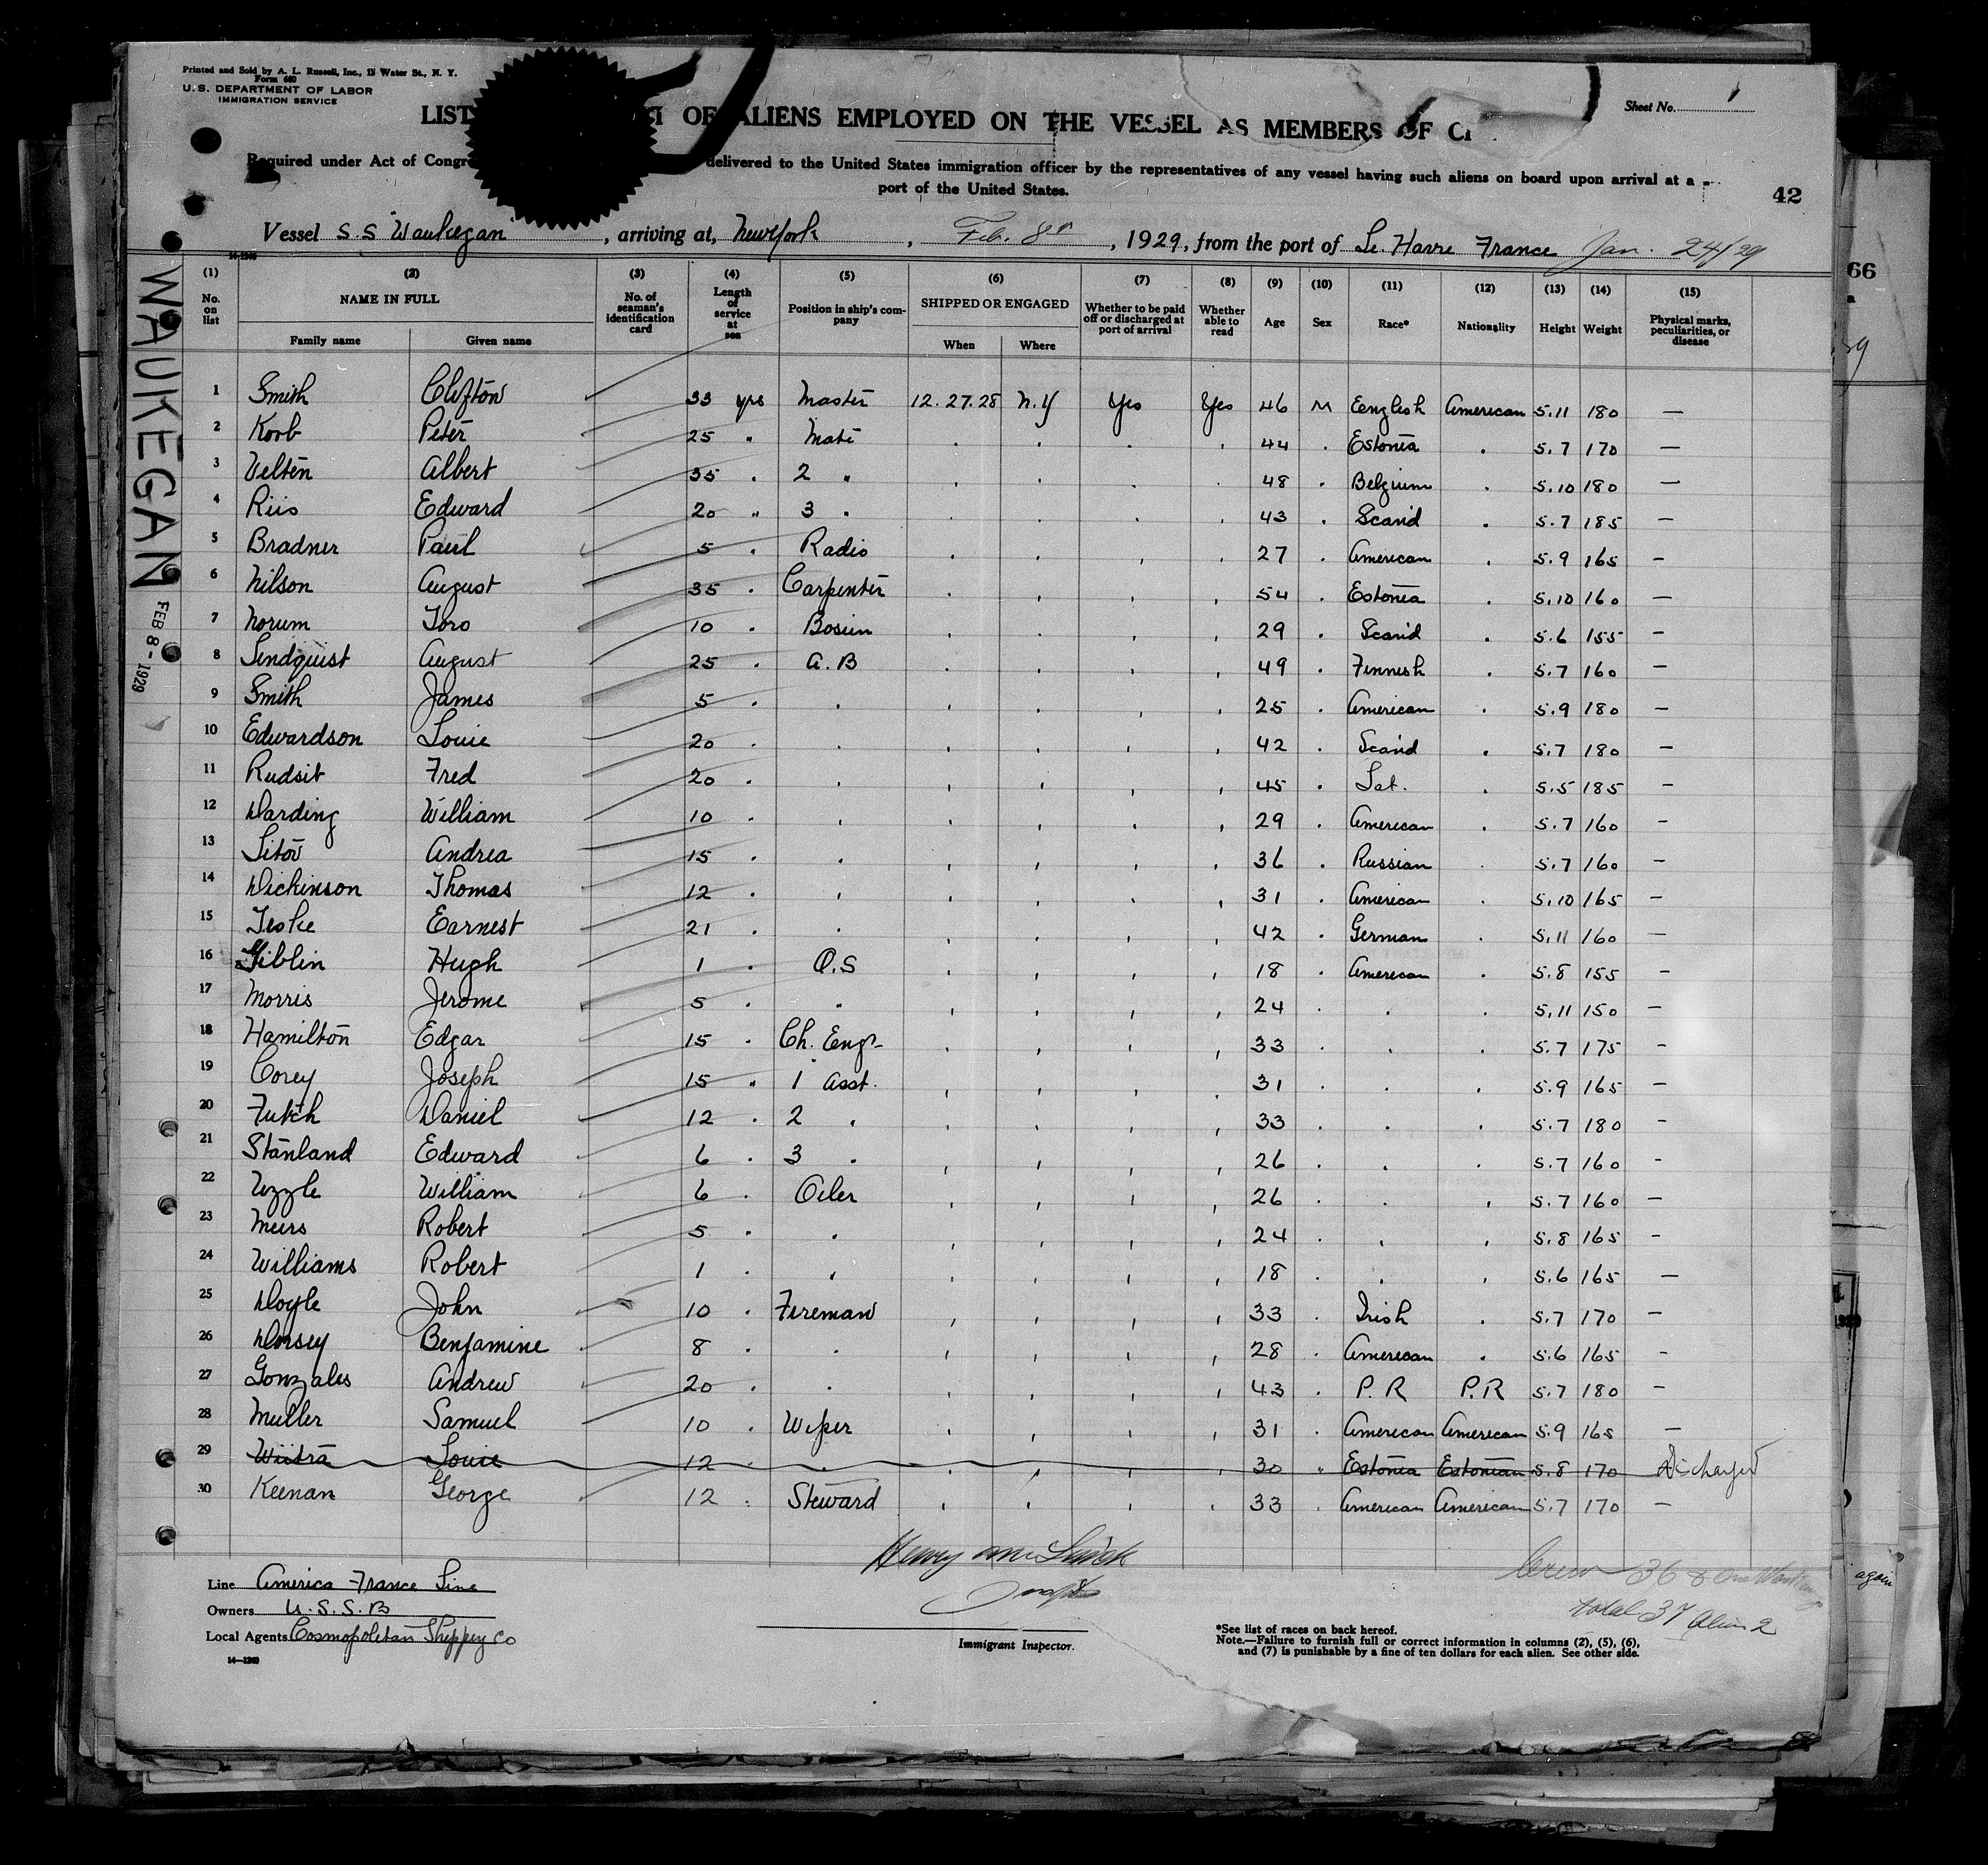 Printed and Sold by A. L. Russell, Inc., 15 Water St., N. Y.
Form 680
U. S. DEPARTMENT OF LABOR
IMMIGRATION SERVICE
Sheet No. 1
LIST OF ALIENS EMPLOYED ON THE VESSEL AS MEMBERS OF
Required under Act of Congre delivered to the United States immigration officer by the representatives of any vessel having such aliens on board upon arrival at a
port of the United States.
42
Vessel S.S "Waukegan", arriving at, New York, Feb. 8th, 1929, from the port of Le. Havre France Jan. 24/29
WAUKEGAN
FEB 8 - 1929
14-1240
(1) (2) (3) (4) (5) (6) (7) (8) (9) (10) (11) (12) (13) (14) (15)
No. on list NAME IN FULL No. of seaman's identification card Length of service at sea Position in ship's company SHIPPED OR ENGAGED Whether to be paid off or discharged at port of arrival Whether able to read Age Sex Race* Nationality Height Weight Physical marks, peculiarities, or disease
Family name Given name When Where
1 Smith Clifton 33 yrs Master 12.27.28 N.Y Yes Yes 46 M Eenglish American 5.11 180 —
2 Koob Peter 25 " Mate 44 Estonia 5.7 170 —
3 Velten Albert 35 2 " 48 Belgium 5.10 180 —
4 Riis Edward 20 " 3 " 43 Scand 5.7 185 —
5 Bradner Paul 5 Radio 27 American 5.9 165 —
6 Nilson August 35 Carpenter 54 Estonia 5.10 160 —
7 Norum Toro 10 Bosun 29 Scand 5.6 155 —
8 Lindquist August 25 A.B 49 Finnish 5.7 160 —
9 Smith James 5 25 American 5.9 180 —
10 Edwardson Louie 20 42 Scand 5.7 180 —
11 Rudsit Fred 20 45 Lat. 5.5 185 —
12 Darding William 10 29 American 5.7 160 —
13 Sitov Andrea 15 36 Russian 5.7 160 —
14 Dickinson Thomas 12 31 American 5.10 165 —
15 Teske Earnest 21 42 German 5.11 160 —
16 Giblin Hugh 1 O.S 18 American 5.8 155 —
17 Morris Jerome 5 " 24 5.11 150 —
18 Hamilton Edgar 15 Ch. Engr 33 5.7 175 —
19 Corey Joseph 15 " 1 Asst. 31 5.9 165 —
20 Futch Daniel 12 2 33 5.7 180 —
21 Stanland Edward 6 3 26 5.7 160 -
22 Uzzle William 6 Oiler 26 5.7 160 —
23 Meirs Robert 5 24 5.8 165 —
24 Williams Robert 1 18 5.6 165 —
25 Doyle John 10 Fireman 33 Irish 5.7 170 —
26 Dorsey Benjamine 8 28 American 5.6 165 —
27 Gonzales Andrew 20 43 P.R P.R 5.7 180 —
28 Muller Samuel 10 Wiper 31 American American 5.9 165 —
29 Wiitra Louie 12 30 " Estonia Estonian 5.8 170 Discharged
30 Keenan George 12 Steward 33 American American 5.7 170 —
Line America France Line
Owners U.S.S.B
Local Agents Cosmopolitan Shippg Co
14—1240
Henry
Immigrant Inspector.
Crew 36 & One
total 37 Alien 2
*See list of races on back hereof.
Note.—Failure to furnish full or correct information in columns (2), (5), (6),
and (7) is punishable by a fine of ten dollars for each alien. See other side.
66
again